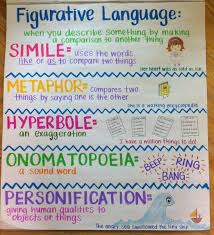 Figurative Language:
when you describe something by making
a comparison to another thing
SIMILE= uses the words
like or as to compare two things
Her heart was as cold as ice
METAPHOR= compares two
things by saying one is the other
She is a walking encyclopedia.
HYPERBOLE=
an exaggeration
I have a million things to do!
ONOMATOPOEIA=
a sound word
BEEP RING
BANG
PERSONIFICATION=
giving human qualities to
objects or things
The angry sea swallowed the tiny ship